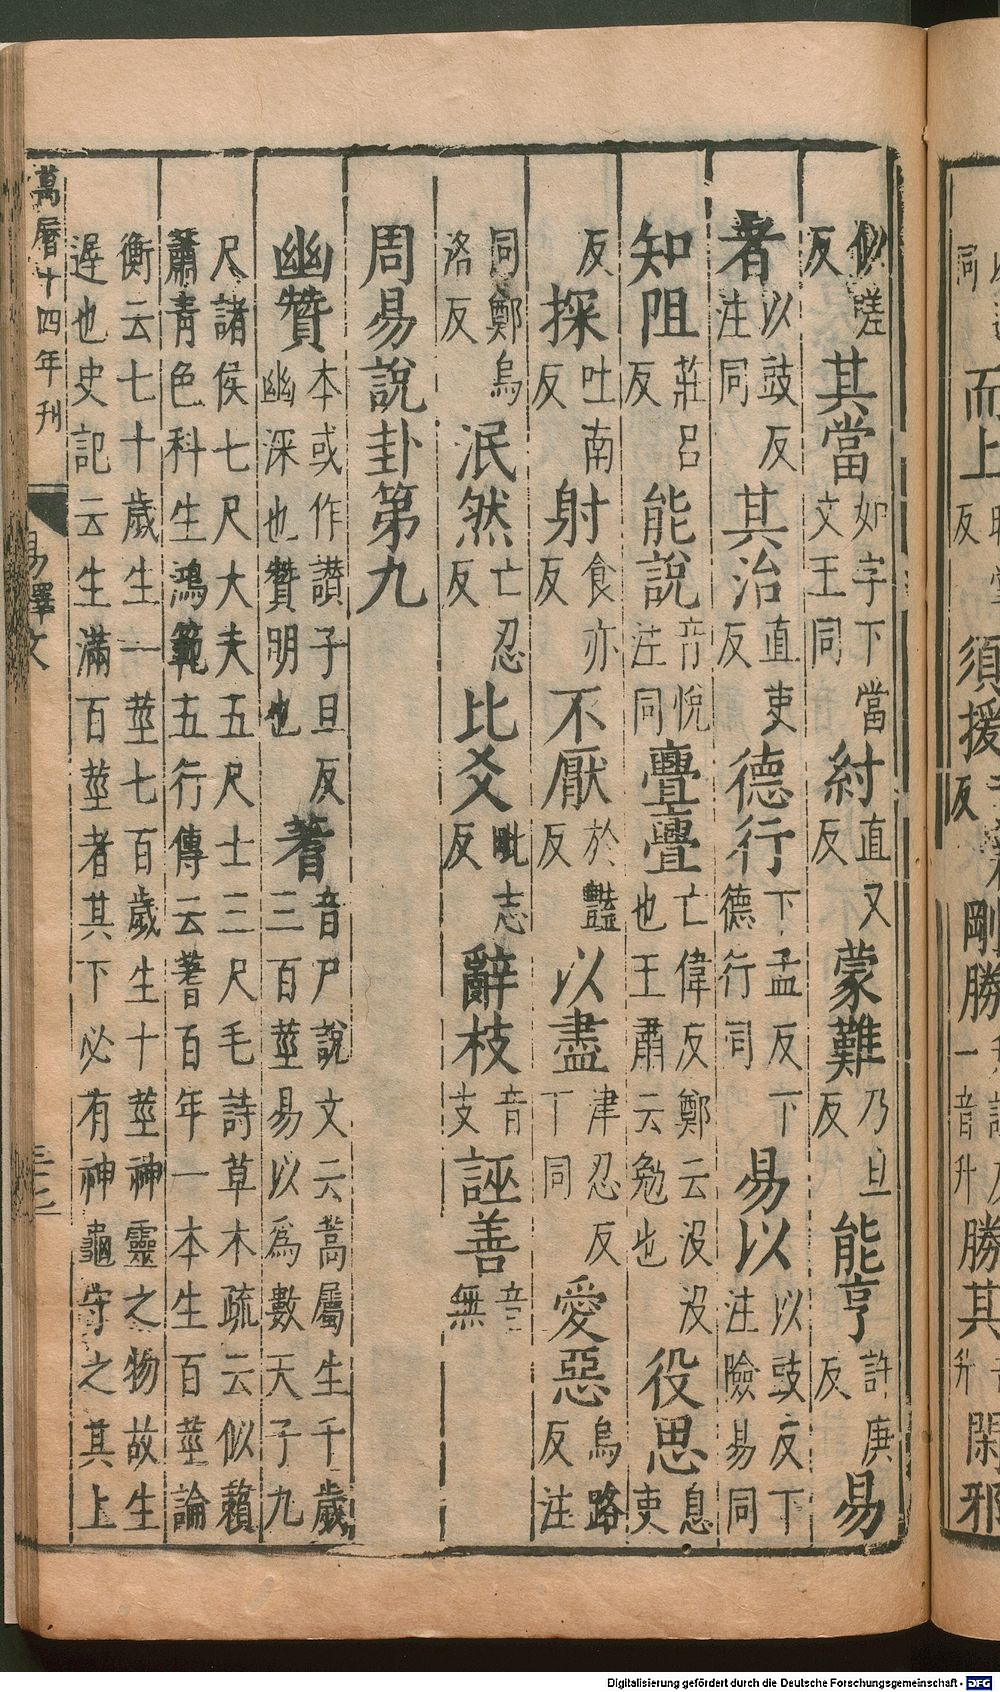 同 而上 反 須援 反 剛勝 一音升 勝其 升 閑邪
似嗟反其當如字下當文王同紂直又反蒙難乃旦反能亨許庚反易
者以豉反注同其治直吏反德行下孟反下德行同易以以豉反下注險易同
知阻莊呂反能說音悅注同亹亹亡偉反鄭云沒沒也王肅云勉也役思息吏
反探吐南反射食亦反不厭於豔反以盡津忍反下同愛惡烏路反注
同鄭烏洛反泯然亡忍反比爻毗志反辭枝音支誣善音無
周易說卦第九
幽贊本或作讃子旦反幽深也贊明也蓍音尸說文云蒿屬生千歲三百莖易以爲數天子九
尺諸侯七尺大夫五尺士三尺毛詩草木疏云似藾蕭青色科生鴻範五行傳云蓍百年一本生百莖論
衡云七十歲生一莖七百歲生十莖神靈之物故生遲也史記云生滿百莖者其下必有神龜守之其上
萬曆十四年刊 易釋文
Digitalisierung gefördert durch die Deutsche Forschungsgemeinschaft - DFG